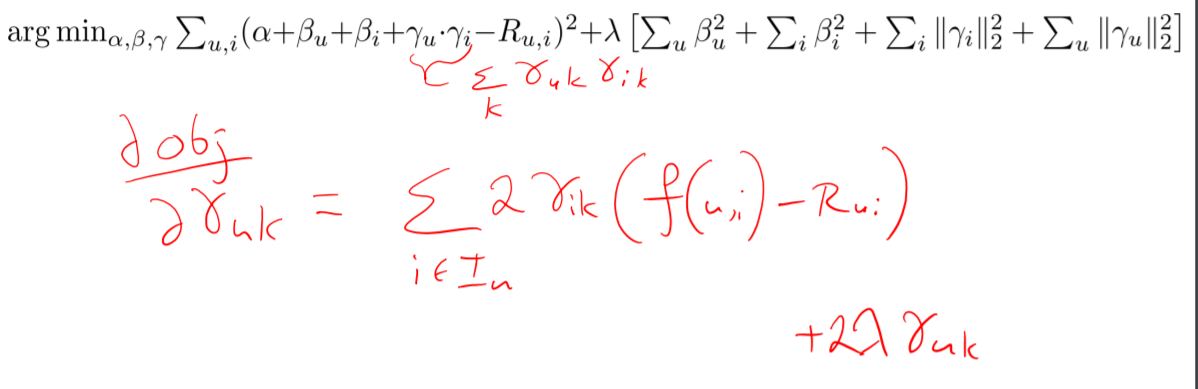 arg min_{α,β,γ} ∑_{u,i}(α+β_u+β_i+γ_u·γ_i−R_{u,i})²+λ [∑_u β_u² + ∑_i β_i² + ∑_i ‖γ_i‖₂² + ∑_u ‖γ_u‖₂²]
∑_k γ_{uk} γ_{ik}
∂obj/∂γ_{uk} = ∑_{i∈I_u} 2γ_{ik}(f(u,i)−R_{ui})
+2λγ_{uk}